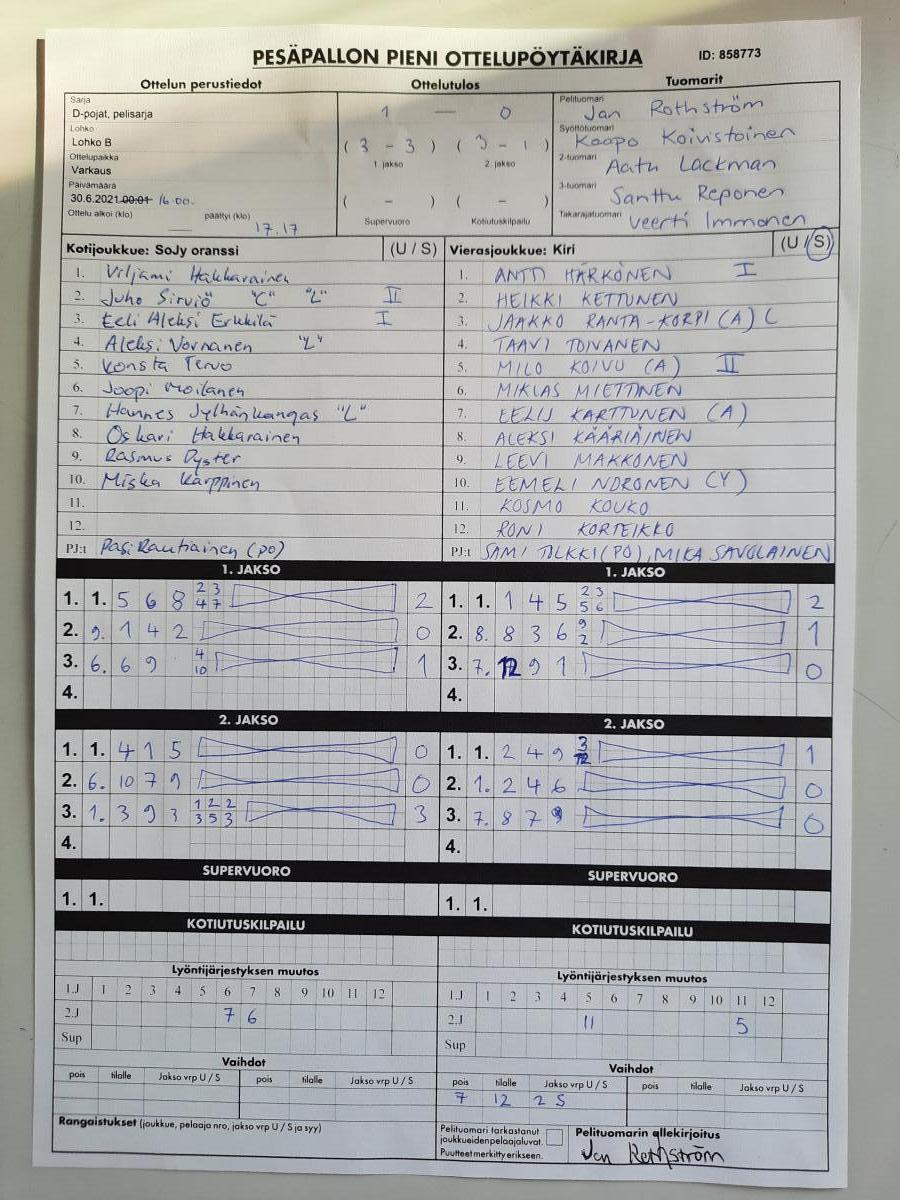 PESÄPALLON PIENI OTTELUPÖYTÄKIRJA ID: 858773
Ottelun perustiedot Ottelutulos Tuomarit
Sarja
D-pojat, pelisarja
Lohko
Lohko B
Ottelupaikka
Varkaus
Päivämäärä
30.6.2021 00:01 16.00.
Ottelu alkoi (klo) päättyi (klo)
17.17
1 — 0
( 3 - 3 ) ( 3 - 1 )
1 jakso 2. jakso
( - ) ( - )
Supervuoro Kotiutuskilpailu
Pelituomari
Jan Rothström
Syöttötuomari
Kaapo Koivistoinen
2-tuomari
Aatu Lackman
3-tuomari
Santtu Reponen
Takarajatuomari
Veerti Immonen
Kotijoukkue: SoJy oranssi (U / S)
1. Viljami Hakkarainen
2. Juho Sirviö "C" "L" II
3. Eeli Aleksi Erkkilä I
4. Aleksi Vornanen "L"
5. Konsta Tervo
6. Joopi Moilanen
7. Hannes Jylhänkangas "L"
8. Oskari Hakkarainen
9. Rasmus Oyster
10. Miska Karppinen
11.
12.
PJ:t Pasi Rautiainen (PO)
Vierasjoukkue: Kiri (U / S)
1. ANTTI HÄRKÖNEN I
2. HEIKKI KETTUNEN
3. JAAKKO RANTA-KORPI (A) C
4. TAAVI TOIVANEN
5. MILO KOIVU (A) II
6. MIKLAS MIETTINEN
7. EELIJ KARTTUNEN (A)
8. ALEKSI KÄÄRIÄINEN
9. LEEVI MAKKONEN
10. EEMELI NORONEN (Y)
11. KOSMO KOUKO
12. RONI KORTEIKKO
PJ:t SAMI TOLKKI (PO), MIKA SAVOLAINEN
1. JAKSO
1. 1. 5 6 8 2 3 4 7 2
2. 9. 1 4 2 0
3. 6. 6 9 4 10 1
4.
1. JAKSO
1. 1. 1 4 5 2 3 5 6 2
2. 8. 8 3 6 9 2 1
3. 7. 12 9 1 0
4.
2. JAKSO
1. 1. 4 1 5 0
2. 6. 10 7 9 0
3. 1. 3 9 3 1 2 2 3 5 3 3
4.
2. JAKSO
1. 1. 2 4 9 3 12 1
2. 1. 2 4 6 0
3. 7. 8 7 9 0
4.
SUPERVUORO
1. 1.
SUPERVUORO
1. 1.
KOTIUTUSKILPAILU
KOTIUTUSKILPAILU
Lyöntijärjestyksen muutos
1.J 1 2 3 4 5 6 7 8 9 10 11 12
2.J 7 6
Sup
Lyöntijärjestyksen muutos
1.J 1 2 3 4 5 6 7 8 9 10 11 12
2.J 11 5
Sup
Vaihdot
pois tilalle Jakso vrp U / S pois tilalle Jakso vrp U / S
Vaihdot
pois tilalle Jakso vrp U / S pois tilalle Jakso vrp U / S
7 12 2 S
Rangaistukset (joukkue, pelaaja nro, jakso vrp U / S ja syy)
Pelituomari tarkastanut
joukkueiden pelaajaluvat.
Puutteet merkitty erikseen.
Pelituomarin allekirjoitus
Jan Rothström